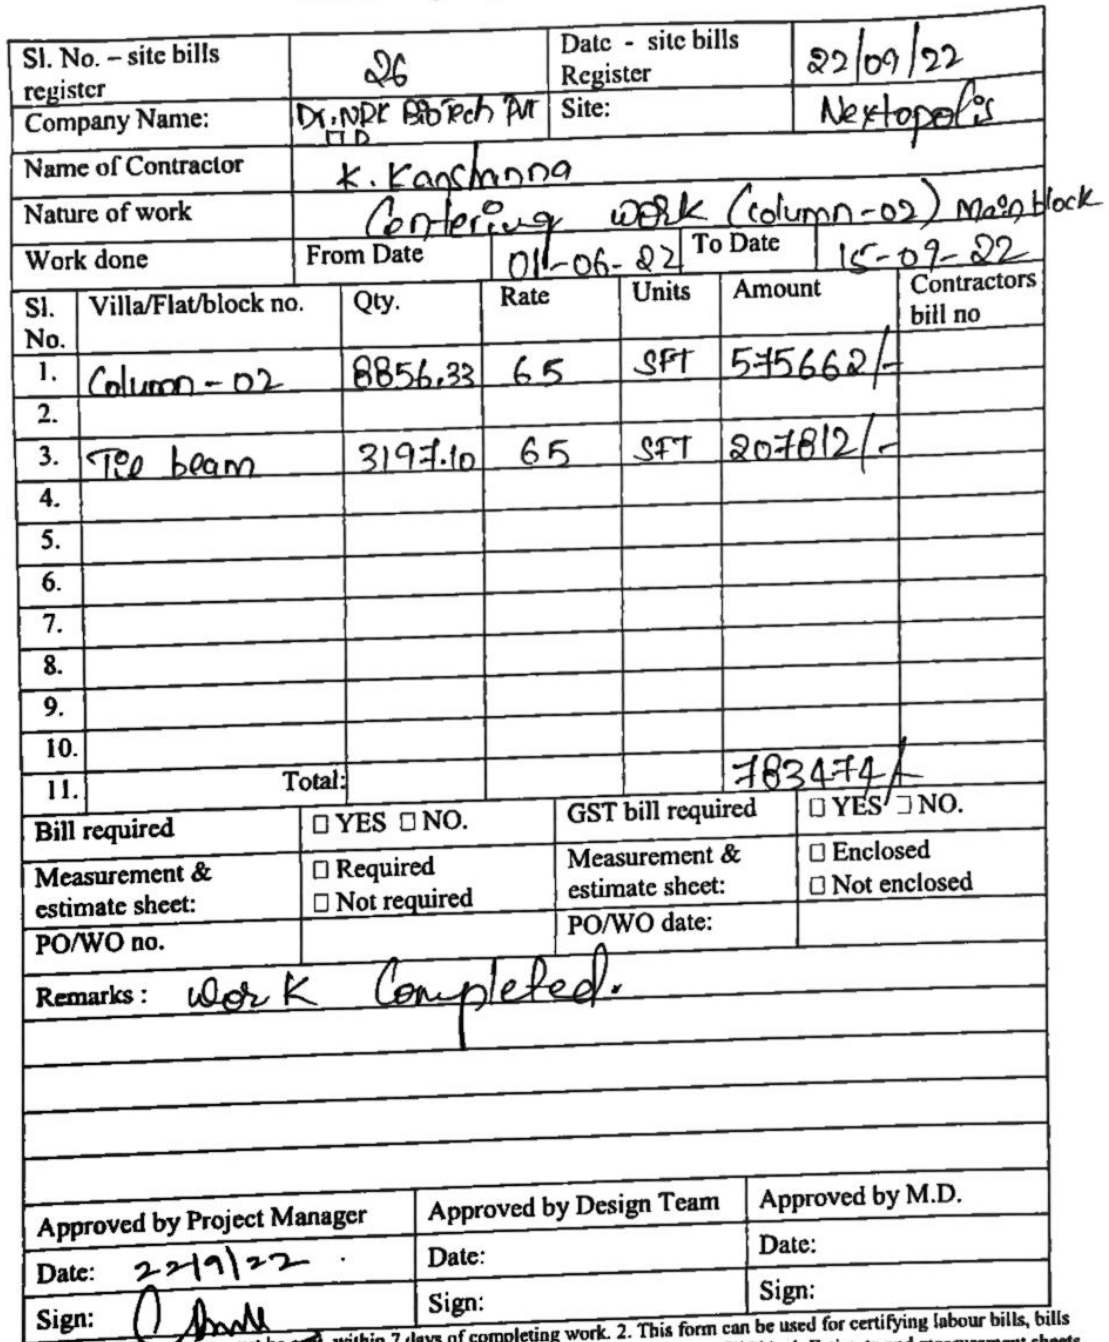 Sl. No. – site bills register 26 Date - site bills Register 22/09/22
Company Name: Dr. NRK BioTech Pvt LTD Site: Nextopolis
Name of Contractor K. Kanshanna
Nature of work Centering work (column-02) Main block
Work done From Date 01-06-22 To Date 15-09-22
Sl. No. Villa/Flat/block no. Qty. Rate Units Amount Contractors bill no
1. Column - 02 8856.33 65 SFT 575662/-
2.
3. Tie beam 3197.10 65 SFT 207812/-
4.
5.
6.
7.
8.
9.
10.
11. Total: 783474/-
Bill required □ YES □ NO. GST bill required □ YES □ NO.
Measurement & estimate sheet: □ Required □ Not required Measurement & estimate sheet: □ Enclosed □ Not enclosed
PO/WO no. PO/WO date:
Remarks : Work Completed.
Approved by Project Manager Approved by Design Team Approved by M.D.
Date: 22/9/22 Date: Date:
Sign: Sign: Sign:
within 7 days of completing work. 2. This form can be used for certifying labour bills, bills